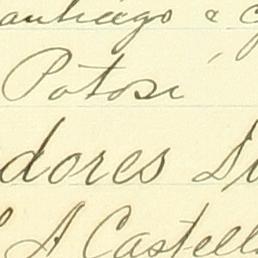 antiago &
Potosí
dores
A Castell